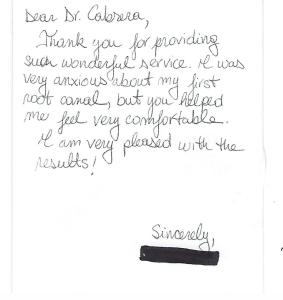 Dear Dr. Cabrera,
Thank you for providing
such wonderful service. I was
very anxious about my first
root canal, but you helped
me feel very comfortable.
I am very pleased with the
results!
Sincerely,